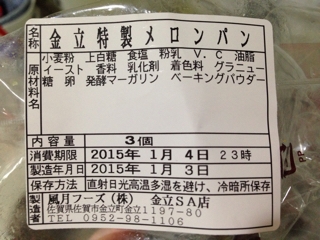 名称 金立特製メロンパン
原材料名 小麦粉 上白糖 食塩 粉乳 V.C 油脂
イースト 香料 乳化剤 着色料 グラニュー
糖 卵 発酵マーガリン ベーキングパウダー
内容量 3個
消費期限 2015年 1月 4日 23時
製造年月日 2015年 1月 3日
保存方法 直射日光高温多湿を避け、冷暗所保存
製造 風月フーズ(株) 金立SA店
佐賀県佐賀市金立町金立1197-80
TEL 0952-98-1106